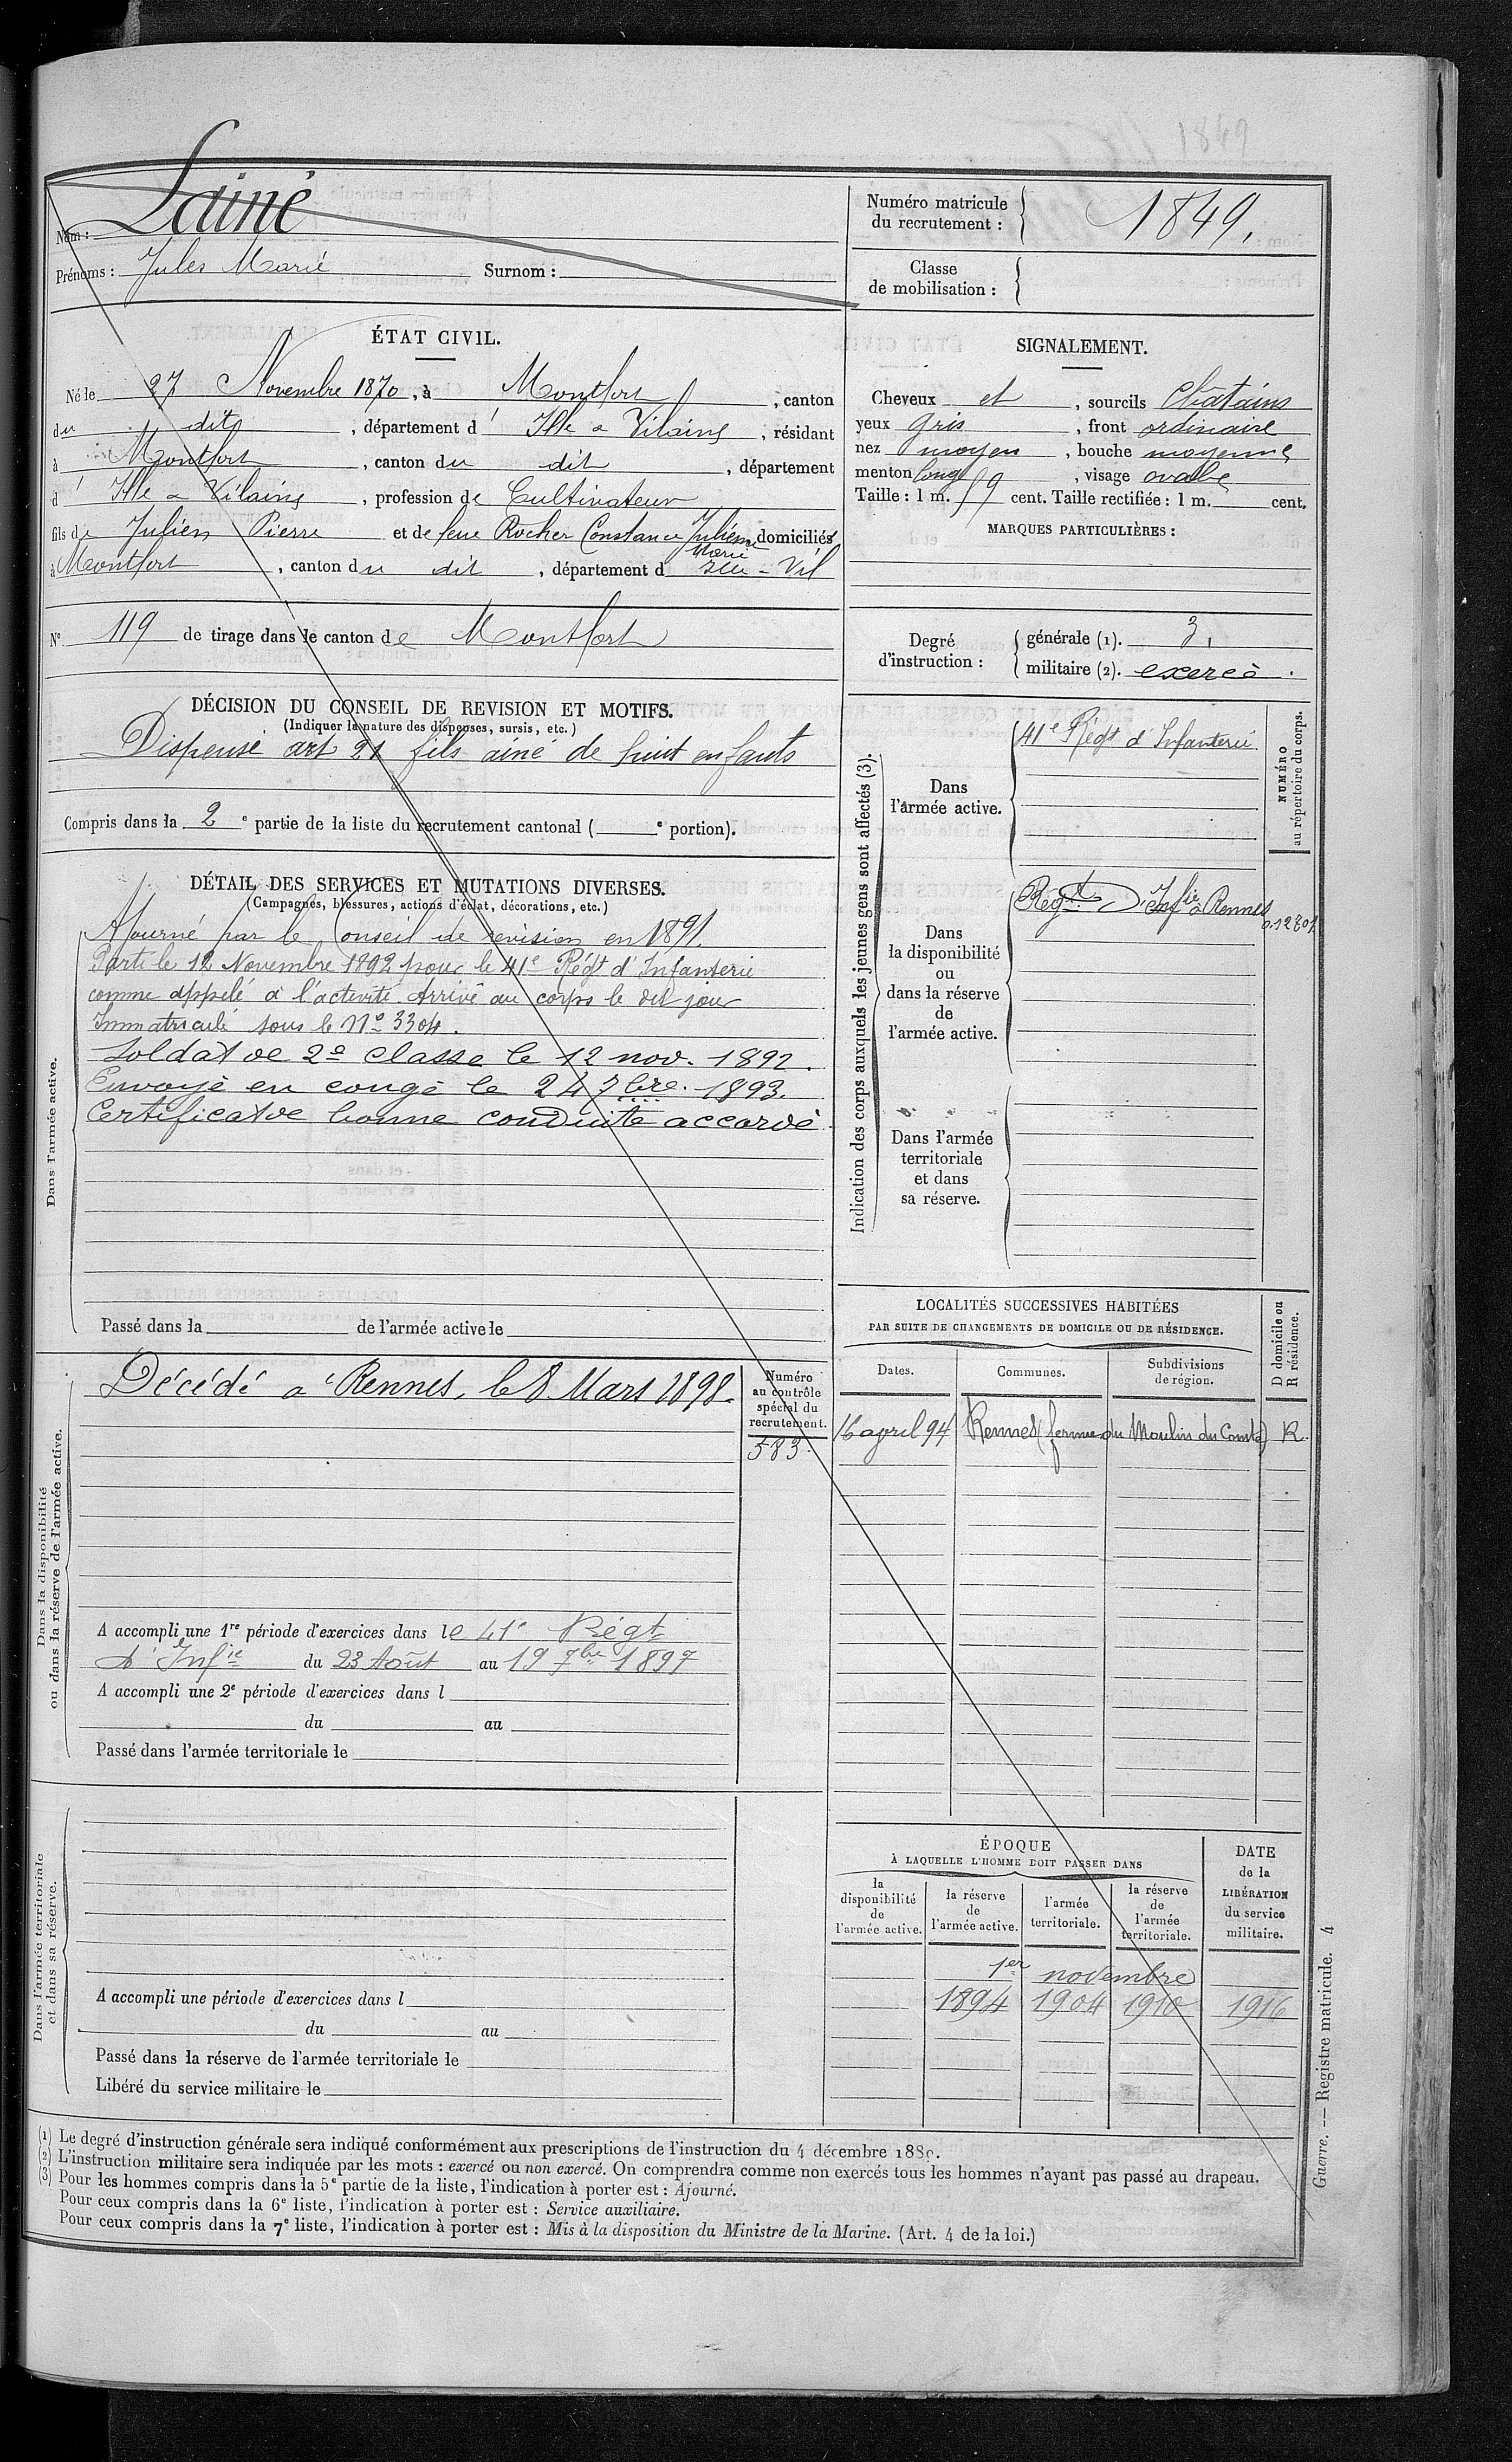 1849
Nom : Lainé
Prénoms : Jules Marie Surnom :
Numéro matricule du recrutement : 1849.
Classe de mobilisation :
ÉTAT CIVIL.
Né le 27 Novembre 1870, à Montfort, canton
du dit, département d' Ille & Vilaine, résidant
à Montfort, canton du dit, département
d' Ille & Vilaine, profession de Cultivateur
fils de Julien Pierre et de feue Rocher Constance Julienne Marie domiciliés
à Montfort, canton du dit, département d Ille-Vil
N° 119 de tirage dans le canton de Montfort
SIGNALEMENT.
Cheveux et, sourcils Chatains
yeux gris, front ordinaire
nez moyen, bouche moyenne
menton long, visage ovale
Taille : 1 m. 59 cent. Taille rectifiée : 1 m. cent.
MARQUES PARTICULIÈRES :
Degré d'instruction :
générale (1). 3.
militaire (2). exercé.
DÉCISION DU CONSEIL DE REVISION ET MOTIFS.
(Indiquer la nature des dispenses, sursis, etc.)
Dispensé art 21 fils ainé de huit enfants
Compris dans la 2e partie de la liste du recrutement cantonal ( e portion).
DÉTAIL DES SERVICES ET MUTATIONS DIVERSES.
(Campagnes, blessures, actions d'éclat, décorations, etc.)
Dans l'armée active.
Ajourné par le Conseil de revision en 1891.
Parti le 12 Novembre 1892 pour le 41e Régt d'Infanterie
comme appelé à l'activité. Arrivé au corps le dit jour
Immatriculé sous le N° 3304.
Soldat de 2e classe le 12 nov. 1892.
Envoyé en congé le 24 7bre. 1893.
Certificat de bonne conduite accordé.
Passé dans la de l'armée active le
Indication des corps auxquels les jeunes gens sont affectés (3).
Dans l'armée active.
41e Régt d'Infanterie
NUMÉRO au répertoire du corps.
Dans la disponibilité ou dans la réserve de l'armée active.
Régt D'Infie à Rennes
Dans l'armée territoriale et dans sa réserve.
LOCALITÉS SUCCESSIVES HABITÉES
PAR SUITE DE CHANGEMENTS DE DOMICILE OU DE RÉSIDENCE.
Dates. Communes. Subdivisions de région. D domicile ou R résidence.
16 avril 94 Rennes (ferme du Moulin du Comte) R.
Dans la disponibilité ou dans la réserve de l'armée active.
Décédé à Rennes, le 8 Mars 1898.
Numéro au contrôle spécial du recrutement.
583.
A accompli une 1re période d'exercices dans le 41e Régt
d'Infie du 23 Août au 19 7bre 1897
A accompli une 2e période d'exercices dans l
du au
Passé dans l'armée territoriale le
Dans l'armée territoriale et dans sa réserve.
A accompli une période d'exercices dans l
du au
Passé dans la réserve de l'armée territoriale le
Libéré du service militaire le
ÉPOQUE
À LAQUELLE L'HOMME DOIT PASSER DANS
la disponibilité de l'armée active. la réserve de l'armée active. l'armée territoriale. la réserve de l'armée territoriale.
DATE de la LIBÉRATION du service militaire.
1er novembre
1894 1904 1910 1916
(1) Le degré d'instruction générale sera indiqué conformément aux prescriptions de l'instruction du 4 décembre 1889.
(2) L'instruction militaire sera indiquée par les mots : exercé ou non exercé. On comprendra comme non exercés tous les hommes n'ayant pas passé au drapeau.
(3) Pour les hommes compris dans la 5e partie de la liste, l'indication à porter est : Ajourné.
Pour ceux compris dans la 6e liste, l'indication à porter est : Service auxiliaire.
Pour ceux compris dans la 7e liste, l'indication à porter est : Mis à la disposition du Ministre de la Marine. (Art. 4 de la loi.)
Guerre. — Registre matricule. 4